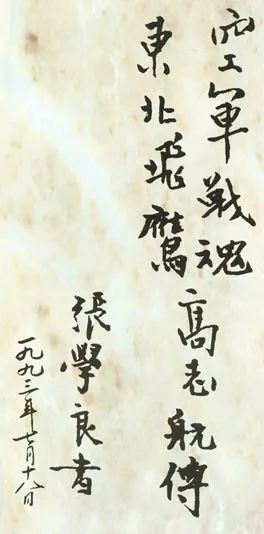 空軍戰魂高志航傳
東北飛鷹
張學良書
一九九三年七月十八日